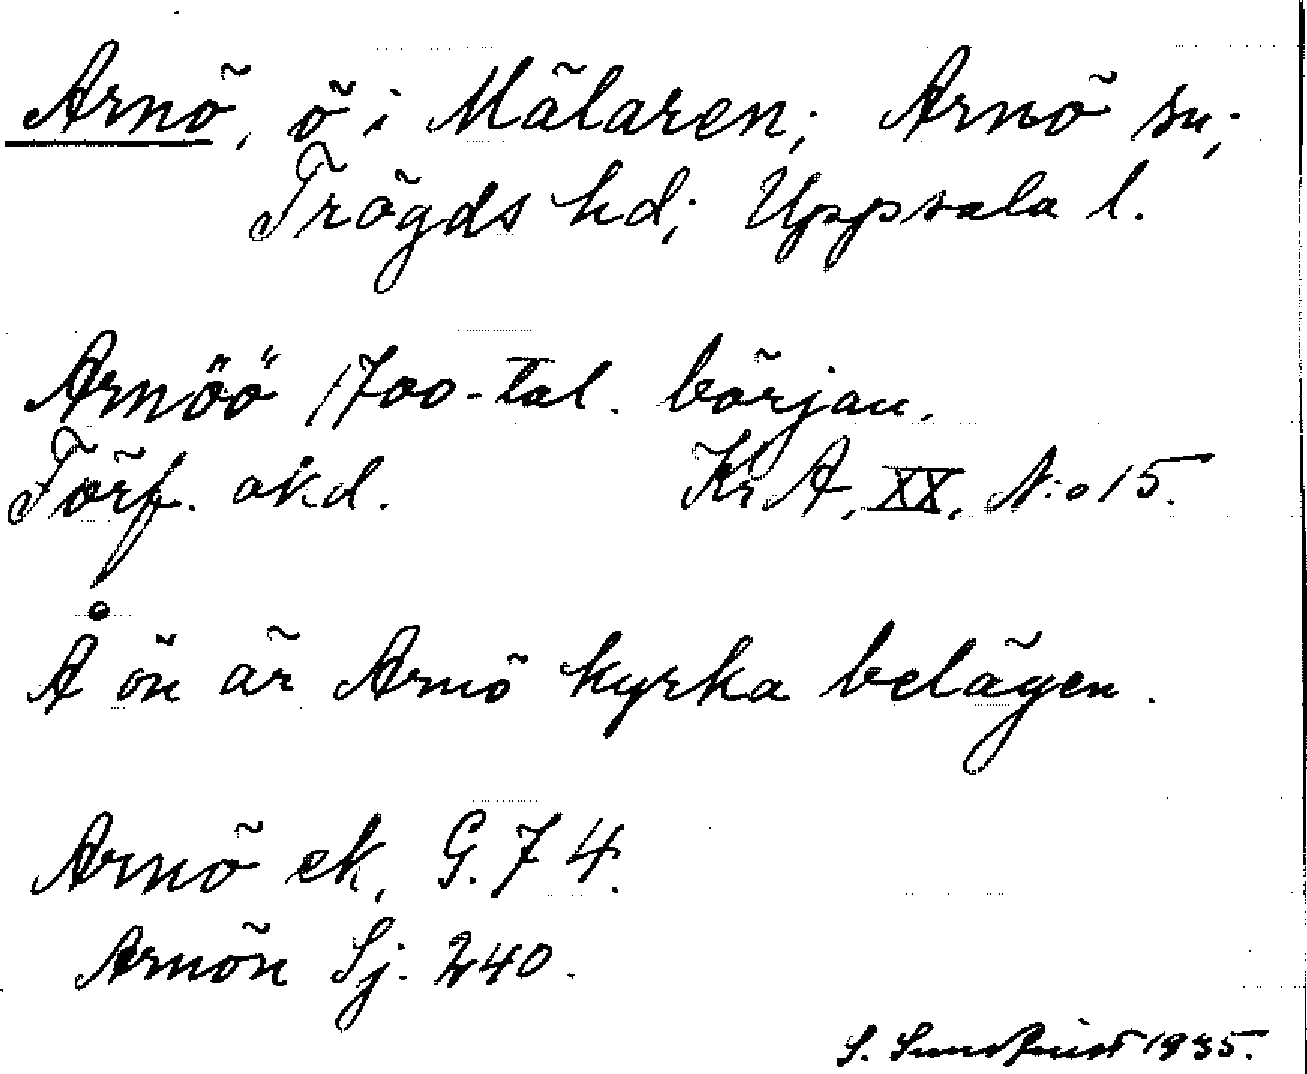 Arnö, ö i Mälaren; Arnö sn;
Trögds hd; Uppsala l.
Arnöö 1700-tal. början.
Förf. okd. Kr A, XX, N:o 15.
Å ön är Arnö kyrka belägen.
Arnö ek, G. 74.
Arnön Sj. 240.
S. Sundkvist 1935.